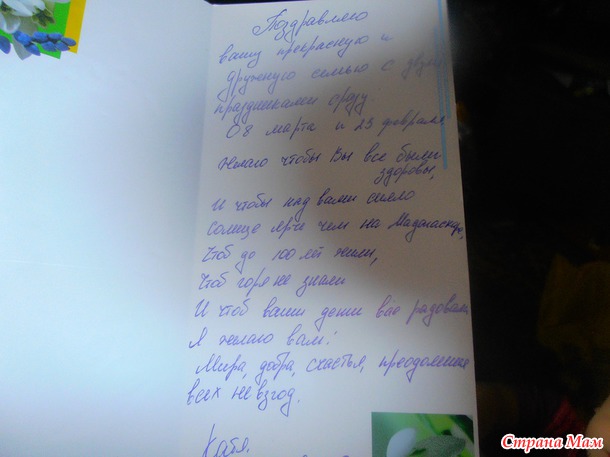 Поздравляю
вашу прекрасную и
дружную семью с двумя
праздниками сразу
08 марта и 23 февраля
Желаю чтобы Вы все были
здоровы,
И чтобы над вами сияло
солнце ярче чем на Мадагаскаре,
Чтоб до 100 лет жили,
Чтоб горя не знали
И чтоб ваши дети вас радовали,
Я желаю вам!
Мира, добра, счастья, преодоления
всех невзгод.
Катя.
Страна Мам